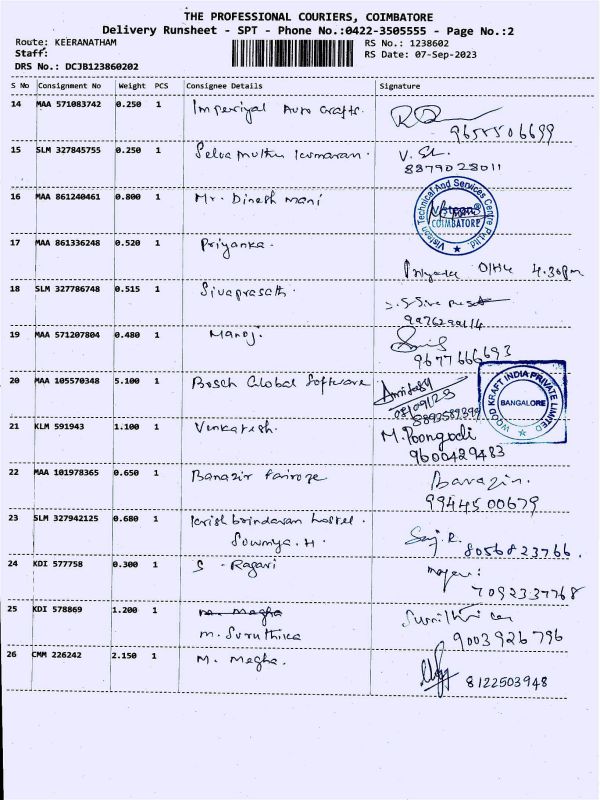 THE PROFESSIONAL COURIERS, COIMBATORE
Delivery Runsheet - SPT - Phone No.:0422-3505555 - Page No.:2
Route: KEERANATHAM
RS No.: 1238602
Staff:
RS Date: 07-Sep-2023
DRS No.: DCJB123860202
S No Consignment No Weight PCS Consignee Details Signature
14 MAA 571083742 0.250 1 Imperiyal Auto Crafts.
9655506699
15 SLM 327845755 0.250 1 Selva muthu kumaran.
8879028011
16 MAA 861240461 0.800 1 Mr. Dinesh mani
Visteon Technical And Services Centre Pvt.Ltd.
COIMBATORE
17 MAA 861336248 0.520 1 Priyanka.
4.30pm
18 SLM 327786748 0.515 1 Sivaprasath.
19 MAA 571207804 0.480 1 Manoj.
9677666693
20 MAA 105570348 5.100 1 Bosch Global Software
WOOD KRAFT INDIA PRIVATE LIMITED
BANGALORE
21 KLM 591943 1.100 1 Venkatesh.
M. Poongodi
9600429483
22 MAA 101978365 0.650 1 Banazir Fairoze
Banazir.
9944500679
23 SLM 327942125 0.680 1 krish brindavan hostel.
Sowmya. H.
8056823766.
24 KDI 577758 0.300 1 S. Ragavi
7092337768
25 KDI 578869 1.200 1 m. Magha
m. Suruthica
9003926796
26 CMM 226242 2.150 1 M. Megha.
8122503948